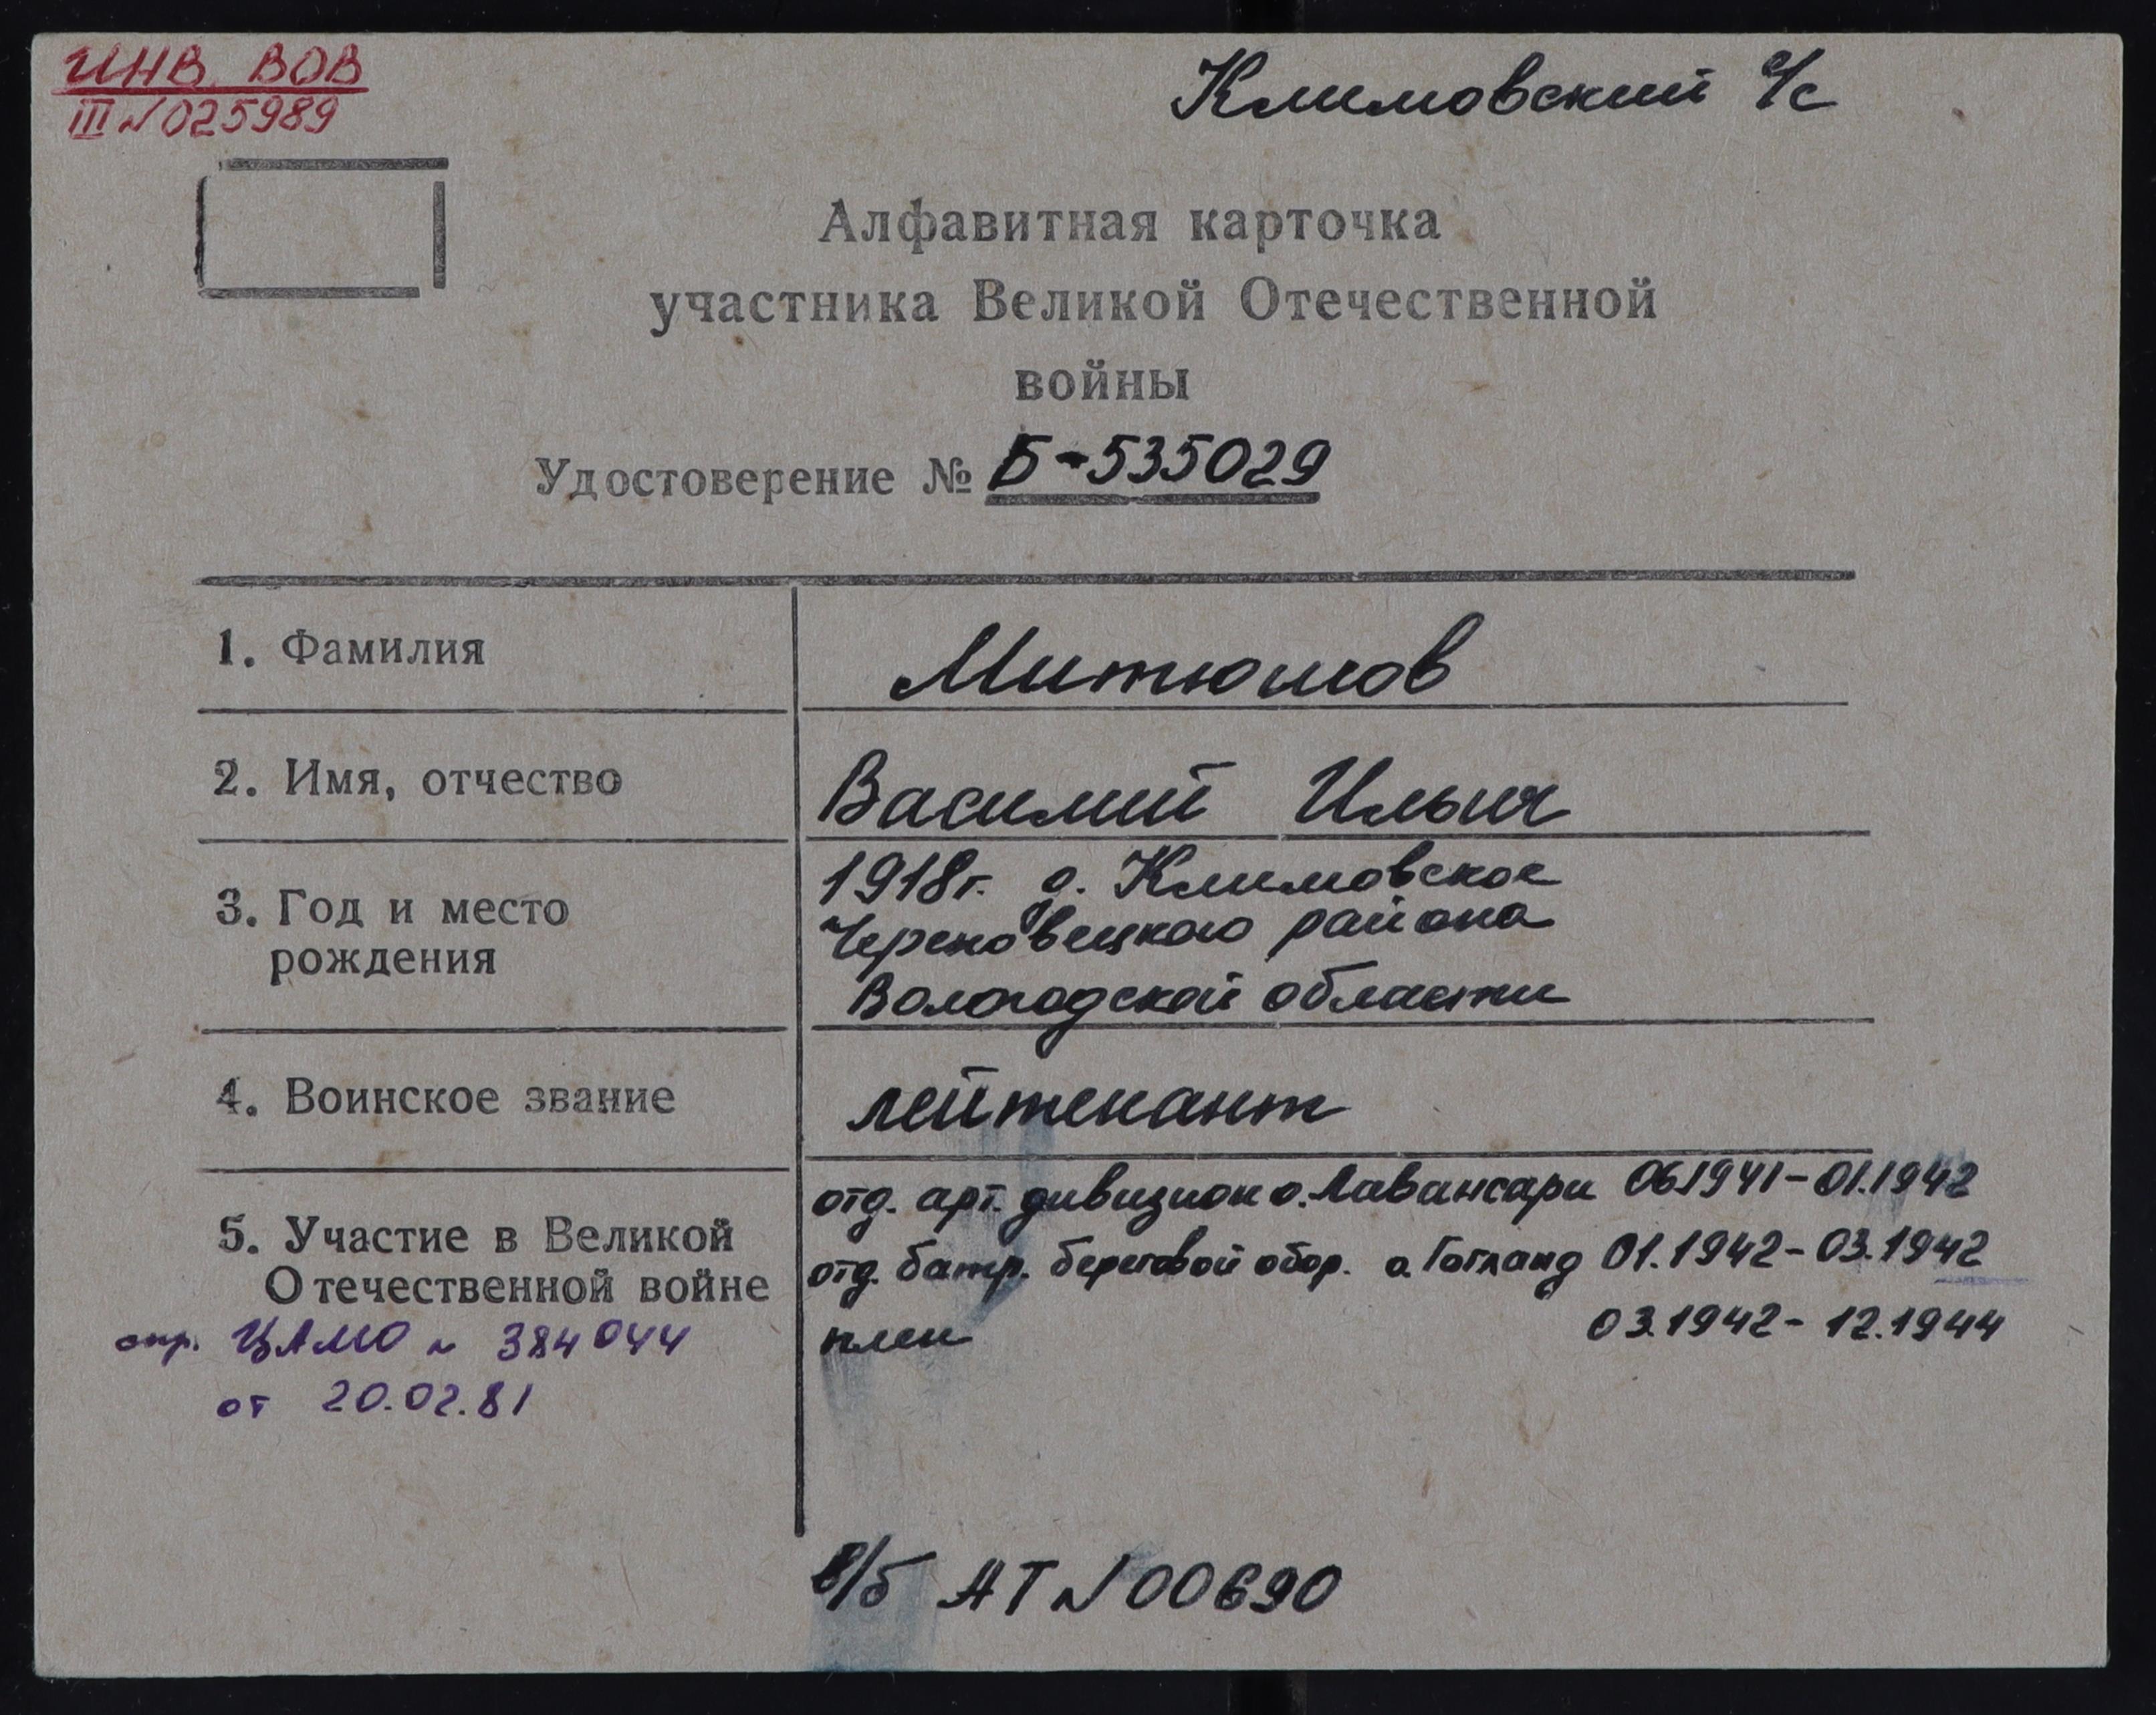 ИНВ. ВОВ
III N 025989
Климовский с/с
Алфавитная карточка
участника Великой Отечественной
войны
Удостоверение № Б-535029
1. Фамилия
Митюшов
2. Имя, отчество
Василий Ильич
3. Год и место
рождения
1918г. д. Климовское
Череповецкого района
Вологодской области
4. Воинское звание
лейтенант
5. Участие в Великой
Отечественной войне
спр. ЦАМО N 384044
от 20.02.81
отд. арт. дивизион о. Лавансари 06.1941-01.1942
отд. батр. береговой обор. о. Готланд 01.1942-03.1942
плен 03.1942-12.1944
в/б АТ N 00690